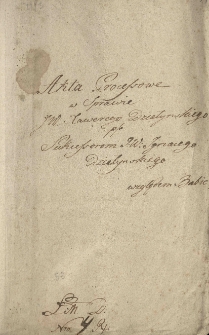 Akta Processowe
w Sprawie
JW. Xawerego Działynskiego
pb
Sukcessorom JW. Ignacego
Działynskiego
względem Babic
Nro 4